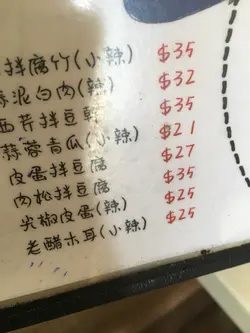 拌腐竹(小辣) $35
泥白肉(辣) $32
西芹拌豆 $35
蒜蓉青瓜(小辣) $21
皮蛋拌豆腐 $27
肉松拌豆腐 $35
尖椒皮蛋(辣) $25
老醋木耳(小辣) $25